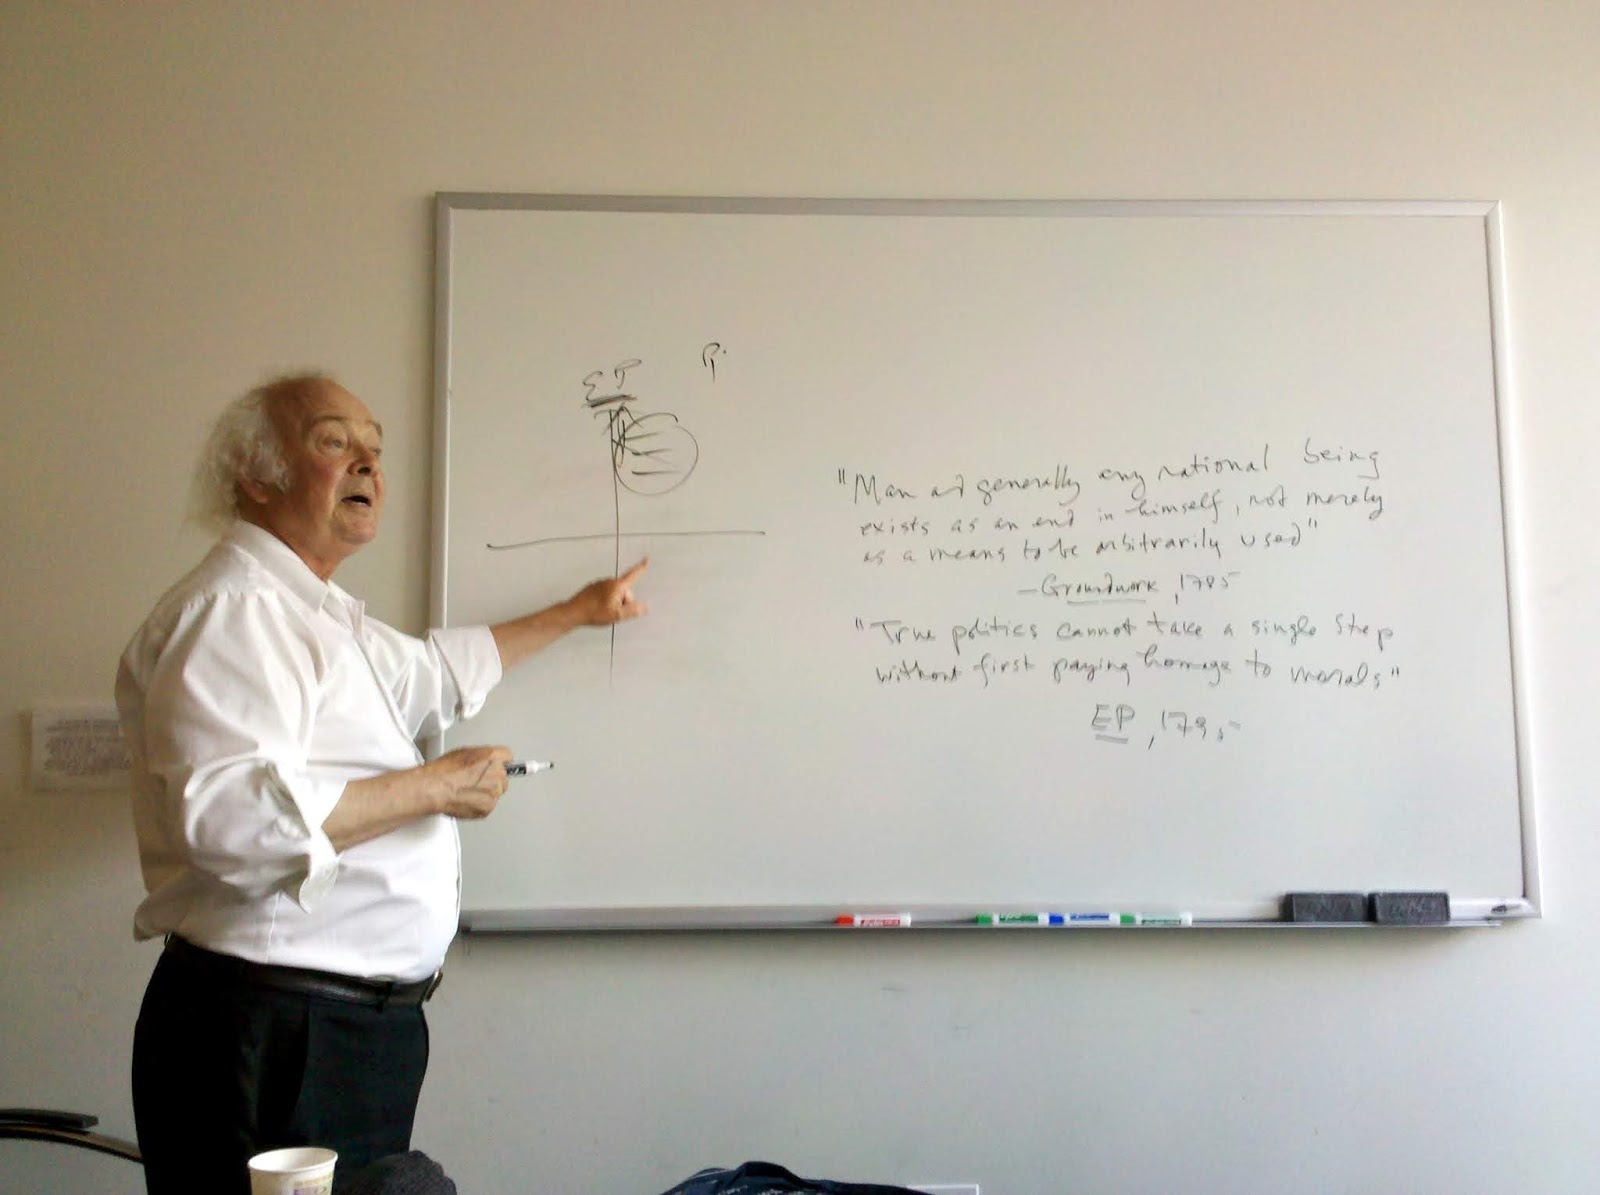 EP
P.
"Man and generally any rational being
exists as an end in himself, not merely
as a means to be arbitrarily used"
— Groundwork, 1785
"True politics cannot take a single step
without first paying homage to morals"
EP, 1795